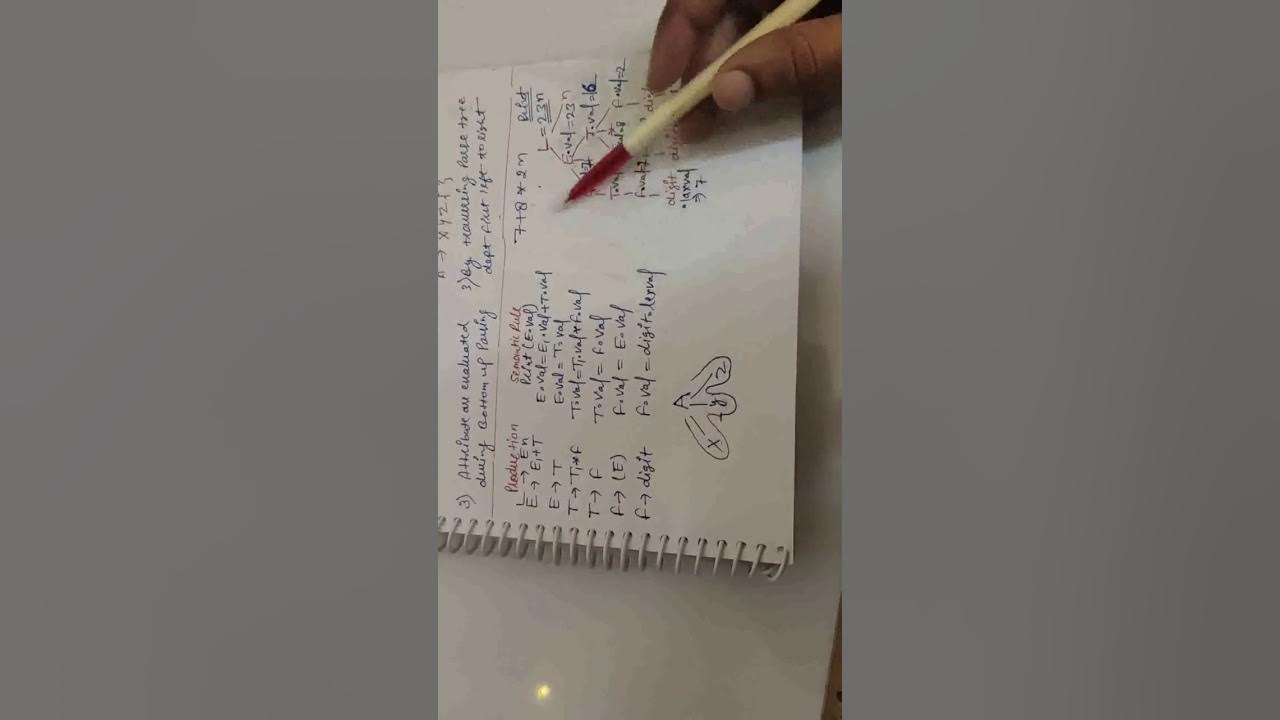 A → XYZ {
3) Attribute are evaluated
during Bottom up Parsing
3) By traversing Parse tree
dept first left to right
Production
Semantic Rule
L → En
Print (E.val)
E → E1+T
E.val = E1.val + T.val
E → T
E.val = T.val
T → T1*F
T.val = T1.val * F.val
T → F
T.val = F.val
F → (E)
F.val = E.val
F → digit
F.val = digit.lexval
7+8*2n
Print
L = 23n
E.val = 23n
T.val = 16
F.val = 2
digit
.lexval
⇒ 7
A
X
y
Z